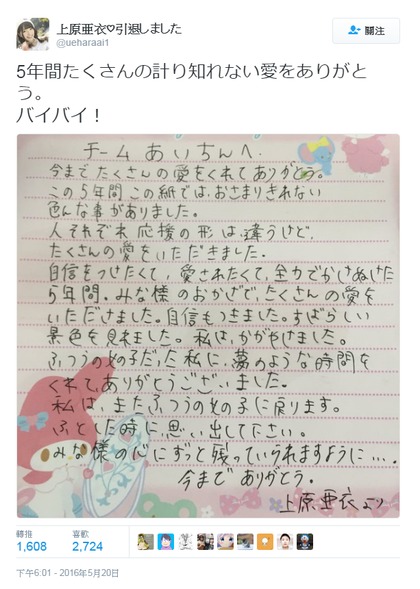 上原亜衣♡引退しました
@ueharaai1
關注
5年間たくさんの計り知れない愛をありがと
う。
バイバイ！
チームあいちんへ.
今までたくさんの愛をくれてありがとう。
この5年間この紙では、おさまりきれない
色んな事がありました。
人それぞれ応援の形は違うけど、
たくさんの愛をいただきました.
自信をつけたくて、愛されたくて、全力でかけぬけた
5年間.みな様のおかげでたくさんの愛を
いただけました。自信もつきました。すばらしい
景色を見れました。私は、かがやけました。
ふつうの女の子だった私に、夢のような時間を
くれてありがとうございました.
私は、またふつうの女の子に戻ります。
ふとした時に、思い出して下さい。
みな様の心にずっと残っていられますように….
今までありがとう.
上原亜衣より
轉推 喜歡
1,608 2,724
下午6:01 - 2016年5月20日